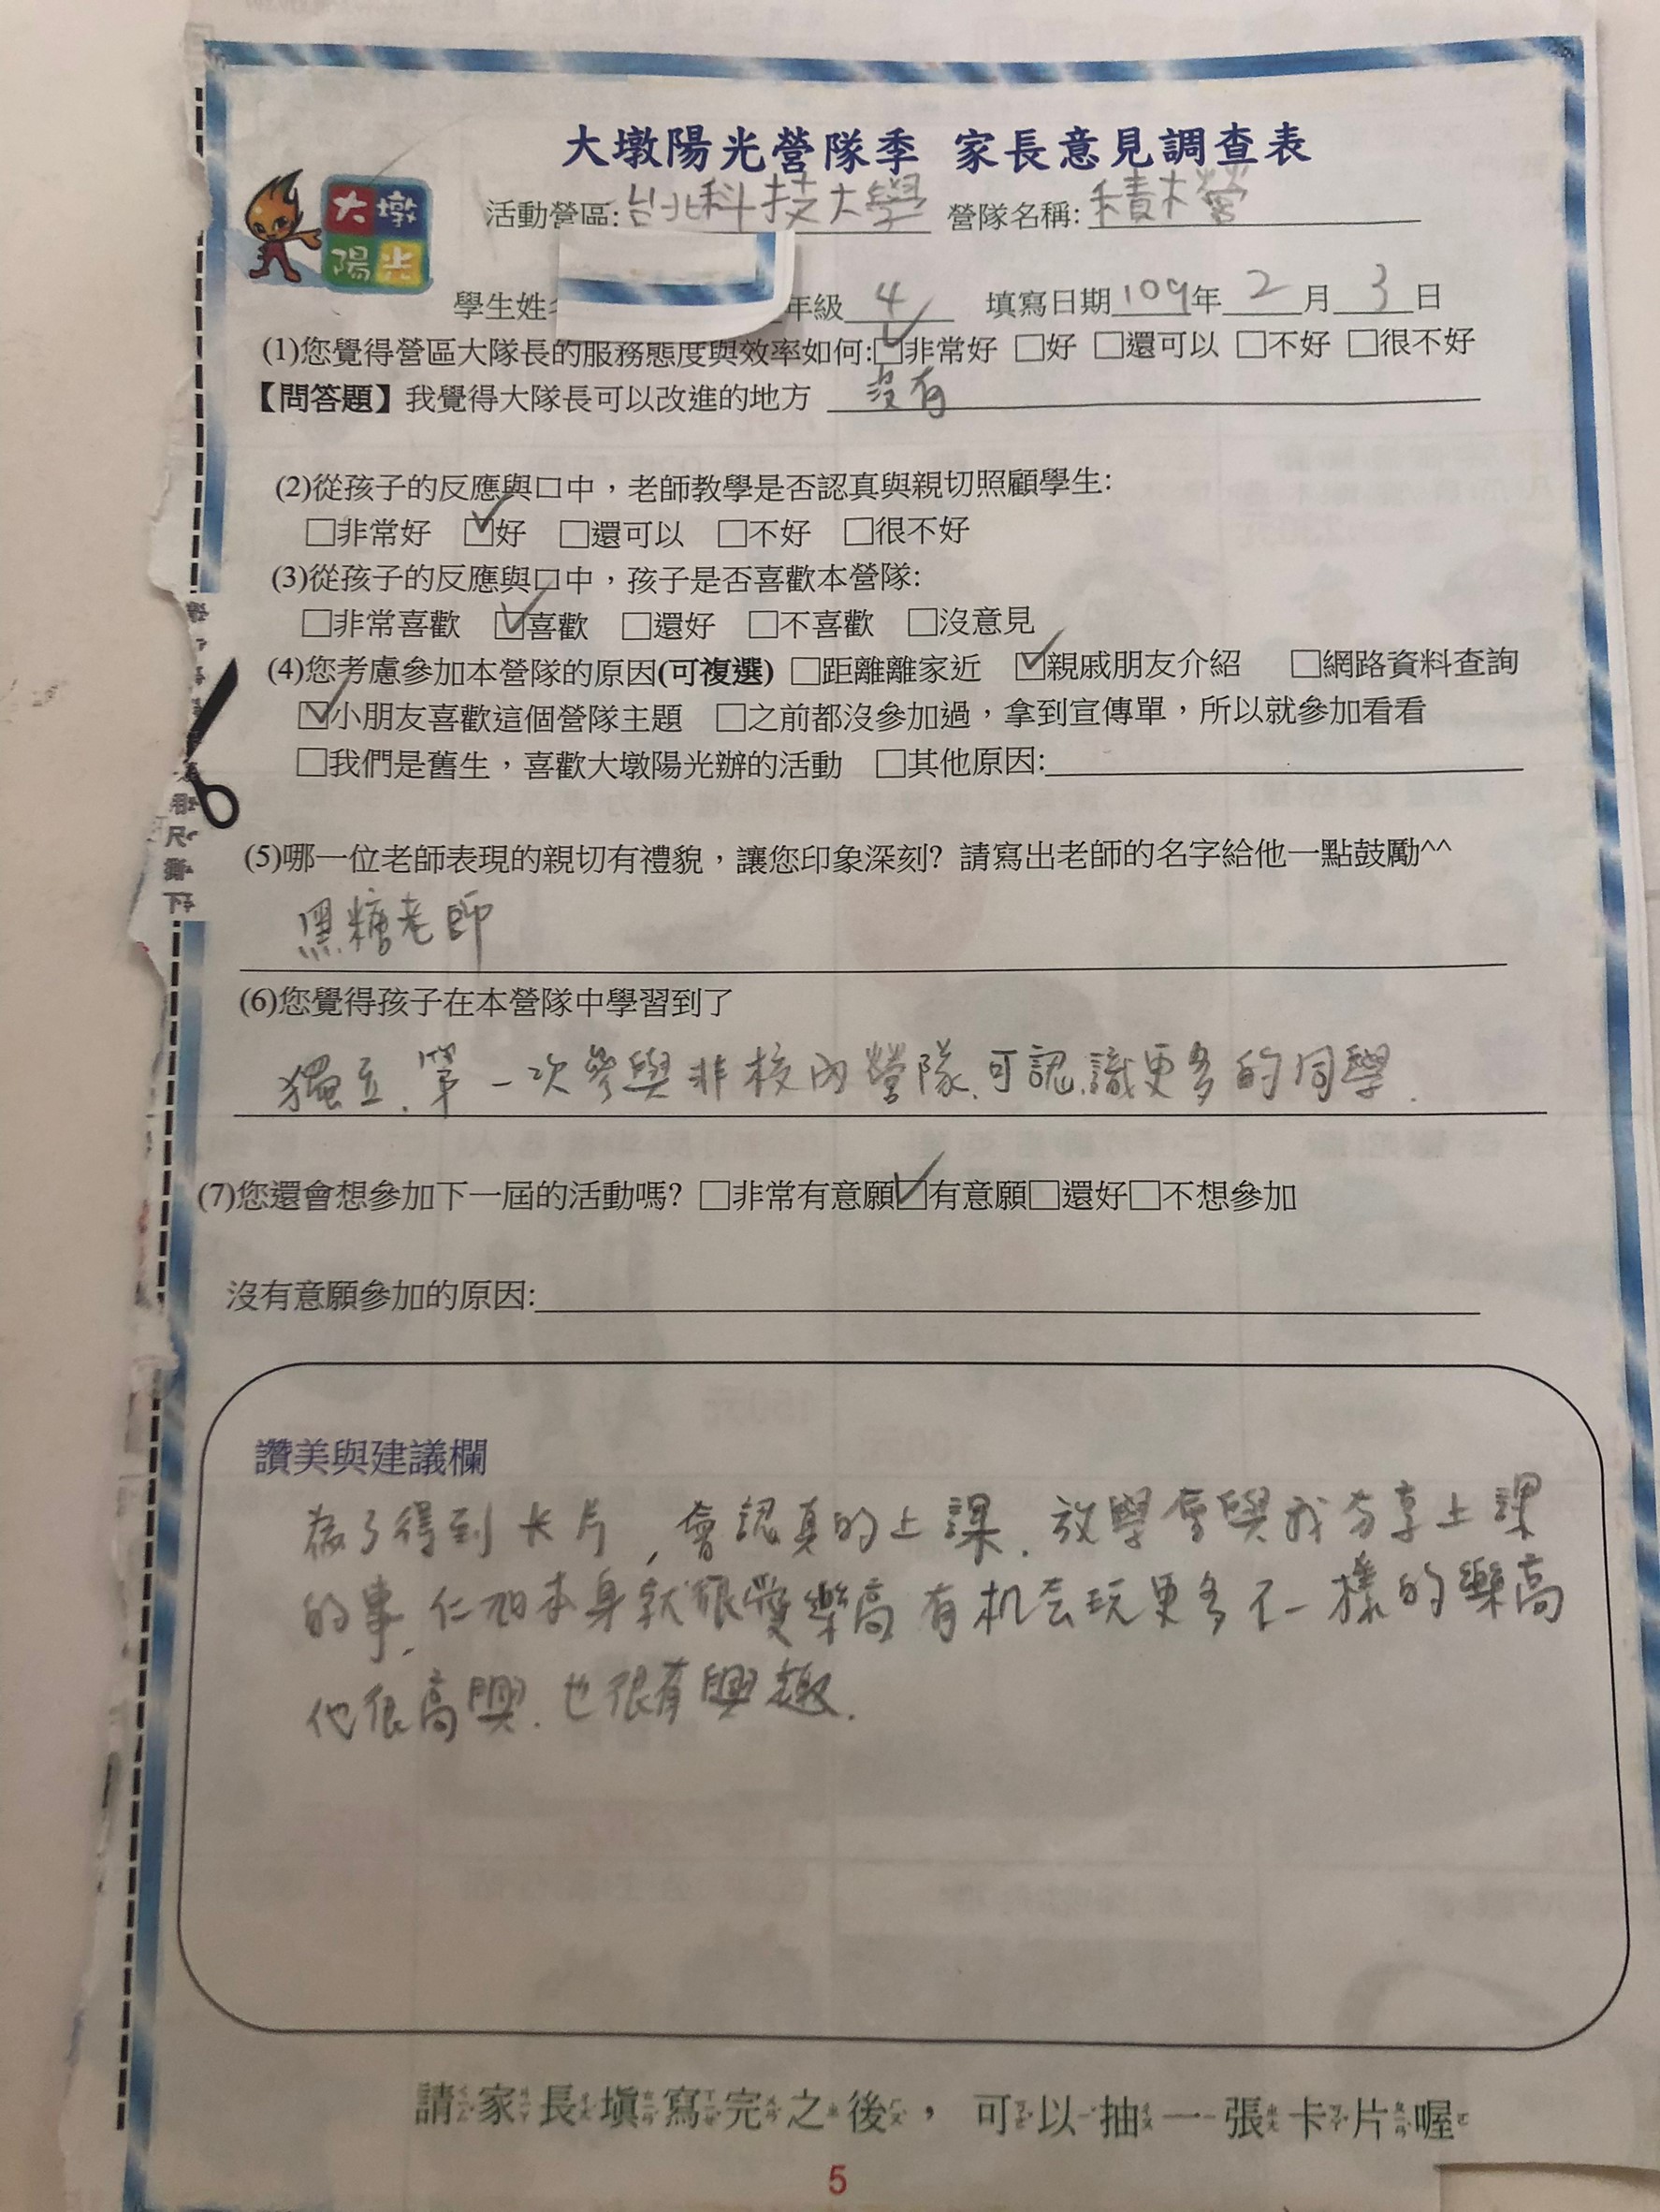 大墩陽光營隊季 家長意見調查表
大墩
陽光
活動營區:台北科技大學 營隊名稱:積木營
學生姓 年級 4 填寫日期109年 2 月 3 日
(1)您覺得營區大隊長的服務態度與效率如何:☑非常好 □好 □還可以 □不好 □很不好
【問答題】我覺得大隊長可以改進的地方 沒有
(2)從孩子的反應與口中，老師教學是否認真與親切照顧學生:
□非常好 ☑好 □還可以 □不好 □很不好
(3)從孩子的反應與口中，孩子是否喜歡本營隊:
□非常喜歡 ☑喜歡 □還好 □不喜歡 □沒意見
(4)您考慮參加本營隊的原因(可複選) □距離離家近 ☑親戚朋友介紹 □網路資料查詢
☑小朋友喜歡這個營隊主題 □之前都沒參加過，拿到宣傳單，所以就參加看看
□我們是舊生，喜歡大墩陽光辦的活動 □其他原因:
(5)哪一位老師表現的親切有禮貌，讓您印象深刻? 請寫出老師的名字給他一點鼓勵^^
黑糖老師
(6)您覺得孩子在本營隊中學習到了
獨立、第一次參與非校內營隊、可認識更多的同學.
(7)您還會想參加下一屆的活動嗎? □非常有意願☑有意願□還好□不想參加
沒有意願參加的原因:
讚美與建議欄
為了得到卡片，會認真的上課. 放學會與我分享上課
的事, 仁本身就很愛樂高有机会玩更多不一樣的樂高
他很高興. 也很有興趣.
請家長填寫完之後，可以抽一張卡片喔
5